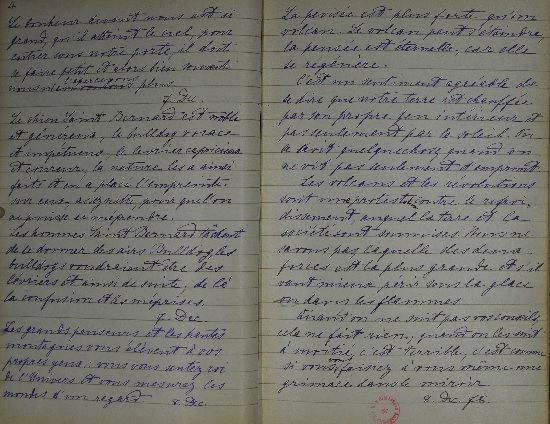 Le bonheur devant nous est si
grand, qu'il atteint le ciel, pour
entrer sous notre porte, il doit
se faire petit et alors bien souvent
nous ne l'apercevons plus.
7. Dec.
Le chien Saint Bernard est noble
et généreux, le bulldog vorace
et impétueux, le levrier capricieux
et coureur, la nature les a ainsi
faits et en a placé l'empreinte
sur eux, assez nette, pour que l'on
ne puisse se méprendre.
Les hommes Saint Bernard tâchent
de se donner des airs Bulldog, les
bulldogs voudraient être des
lévriers et ainsi de suite, de là
la confusion et les méprises.
7. Dec.
Les grands penseurs et les hautes
montagnes vous élèvent à vos
propres yeux: vous vous sentez roi
de l'Univers et vous mesurez les
mondes d'un regard. 8. Dec.
La pensée est plus forte qu'un
volcan. Le volcan peut s'éteindre,
la pensée est éternelle, car elle
se régénère.
C'est un sentiment agréable de
se dire que notre terre est chauffée
par son propre feu intérieur et
pas seulement par le soleil. On
a droit quelque chose quand on
ne vit pas seulement d'emprunt.
Les volcans et les révolutions
sont une protestation contre le refroi-
dissement auquel la terre et la
société sont soumises. Nous ne
savons pas laquelle des deux
forces est la plus grande et s'il
vaut mieux périr sous la glace
ou dans les flammes.
Quand on ne suit pas vos conseils,
cela ne fait rien, quand on les suit
à moitié, c'est terrible, c'est comme
si vous faisiez à vous même une
grimace dans le miroir.
8. Dec 95.